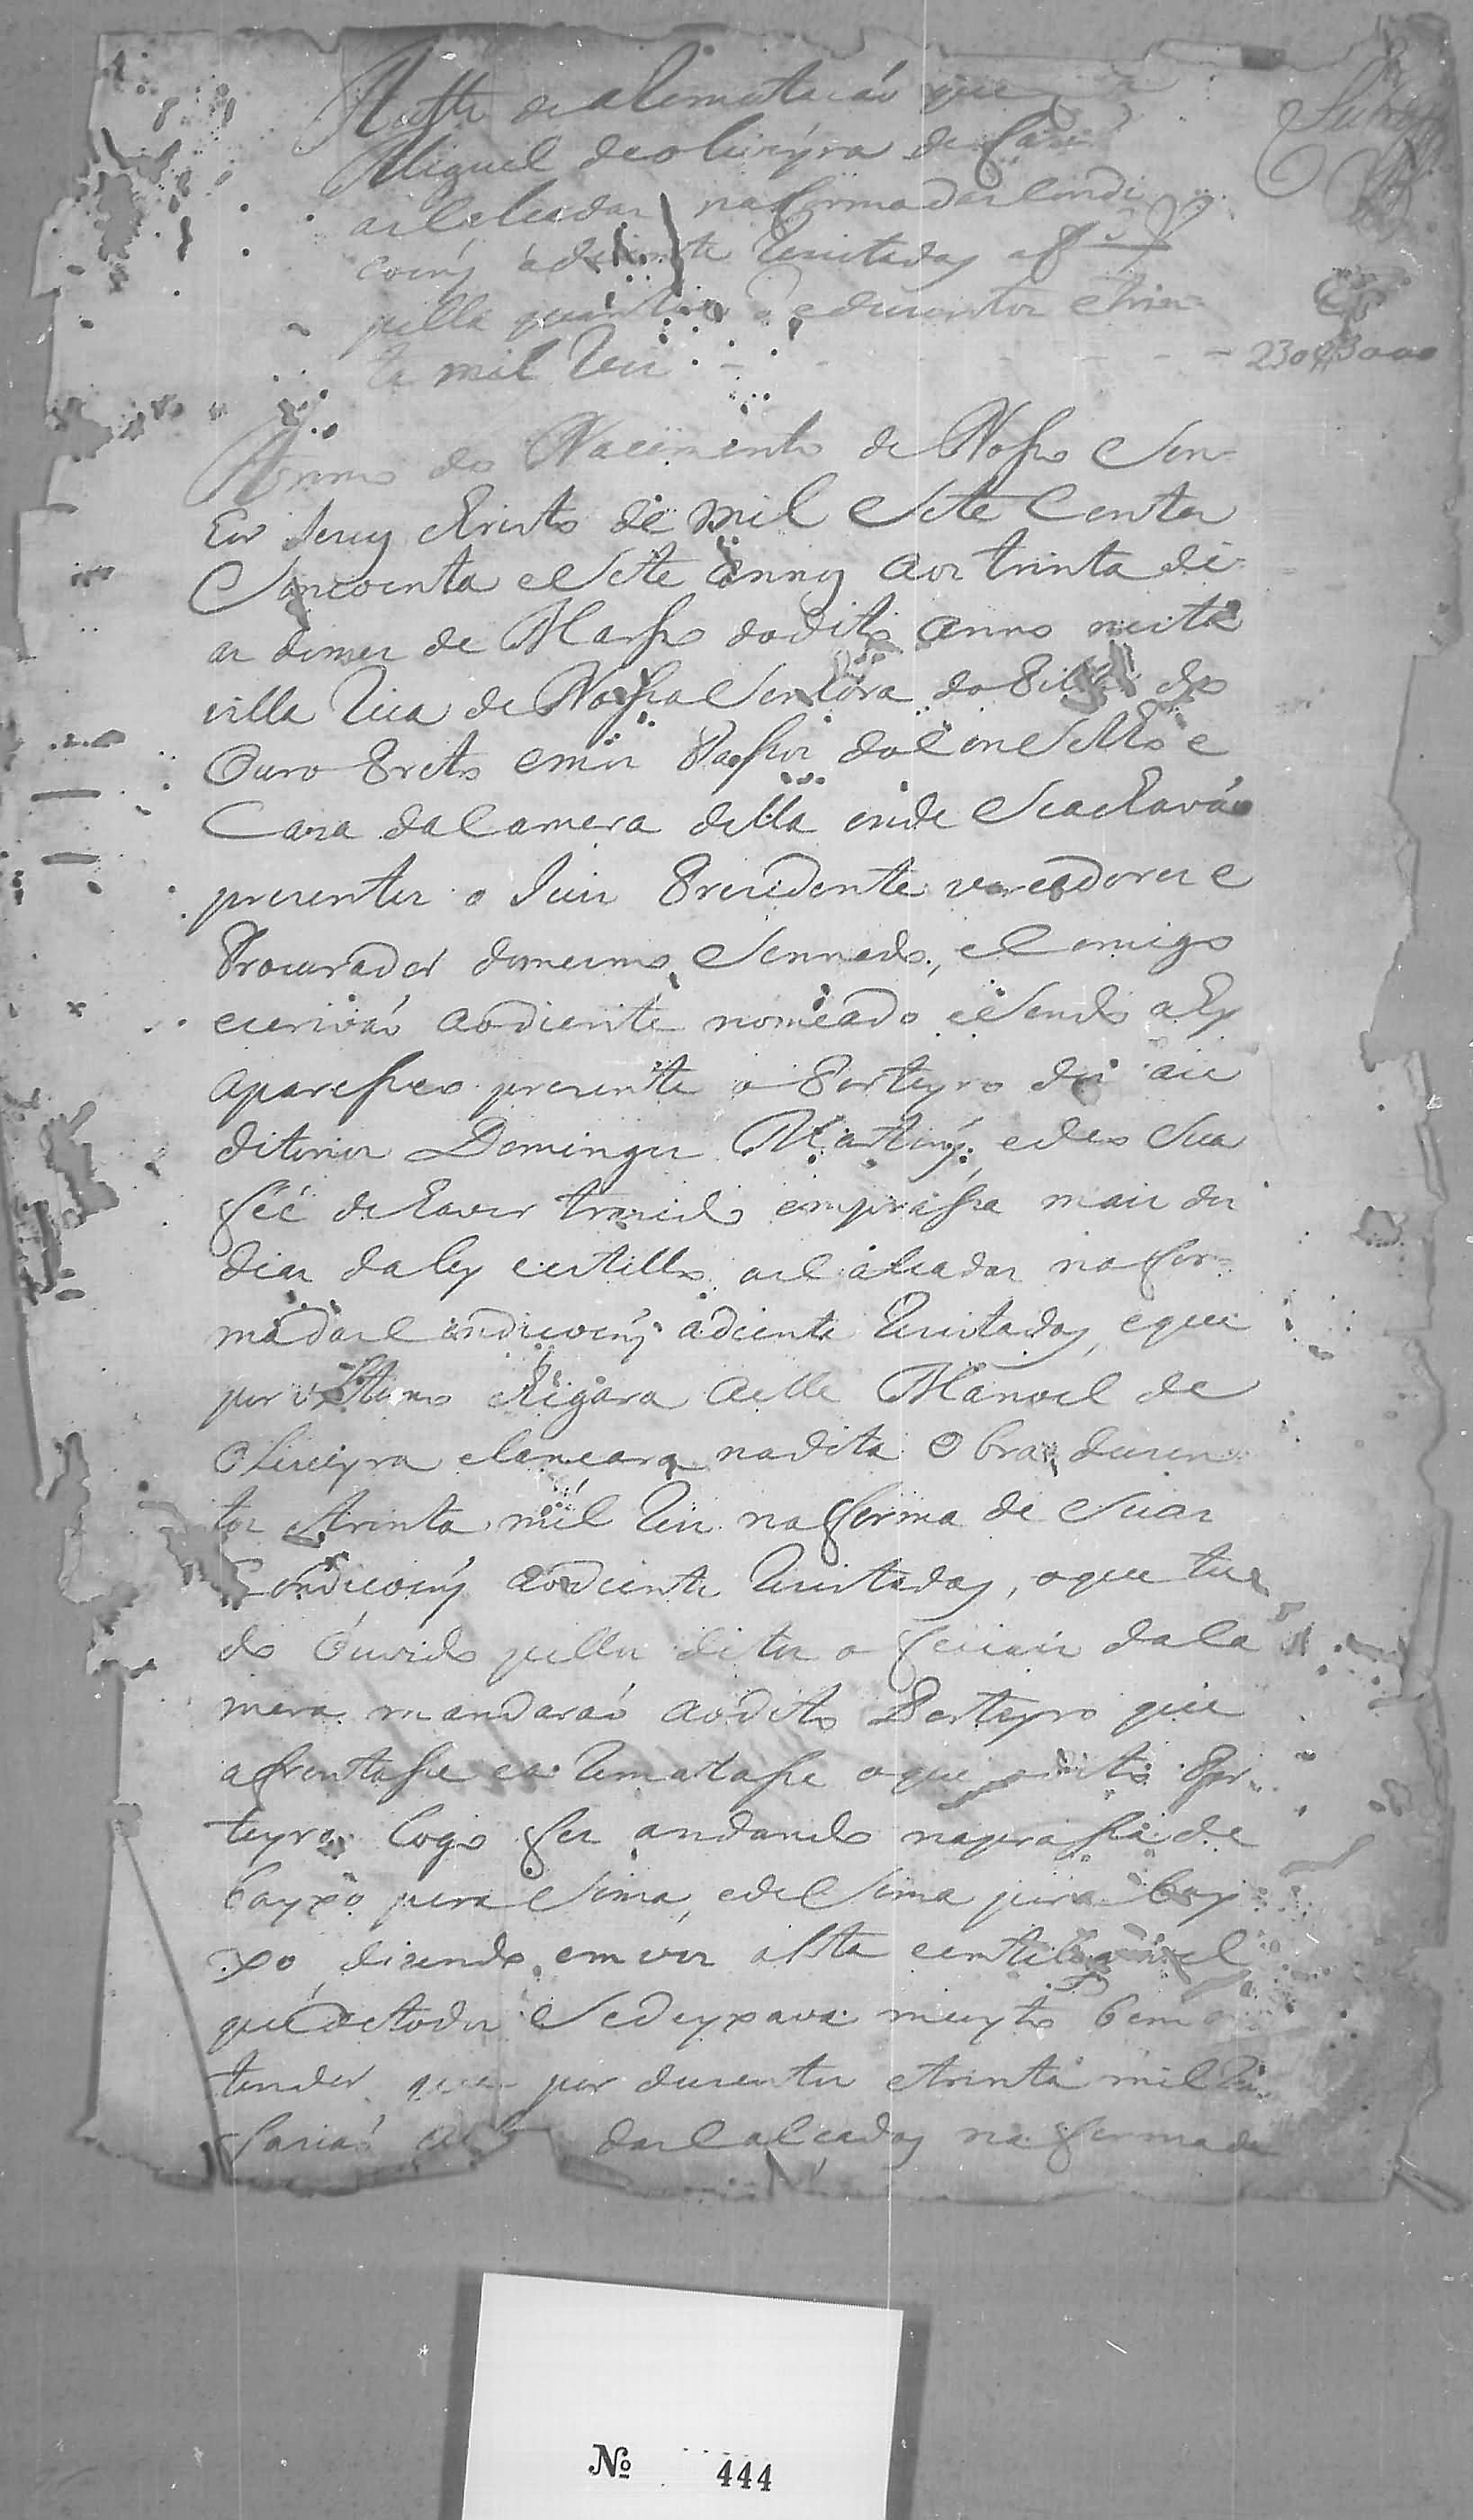 Autto de aRematacáo que
Miguel de oliveyra de fazer
as Calcadas na forma das Condi
coins adiente Rezistadas a f
pella quantia de duzentos e trin-
ta mil Reis - - - - 230$000
Anno do Nacimento de Nosso Sen-
hor Jezus christo de mil e Sete Centos
e Sincoenta e Sete annos aos trinta di-
as do mes de Marsso do dito anno nesta
villa Rica de Nossa Senhora do Pillar do
Ouro Preto em os Passos do Conselho e
Caza da Camera della onde Se achavão
prezentes o Juiz Prezidente vereadores e
Procurador do mesmo Sennado, e Comigo
escrivão ao diente nomeado e Sendo ahy
aparesseo prezente o Porteyro dos au
ditorios Domingos Martins, e deo Sua
fée de haver trazido em prassa mais dos
dias da ley e estillo as Calcadas na for-
ma das Condicoins adiente Rezistadas, e que
por ultimo chegara a elle Manoel de
Oliveyra e lancara na dita Obra duzen-
tos e trinta mil Reis na forma de Suas
Condicoins ao diente Rezistadas, o que tu
do Ouvido pellos ditos o feciais da Ca
mera mandarão ao dito Porteyro que
afrontasse e a Rematasse o que o dito Por-
teyro logo fes andando na prassa de
bayxo pera Sima, e de Sima pera bay
xo, dizendo, em vos alta e entiligivel
que de todos Se deyxava muyto bem en
tender que por duzentos e trinta mil Reis
farião as das Calcadas na forma de
Nº 444